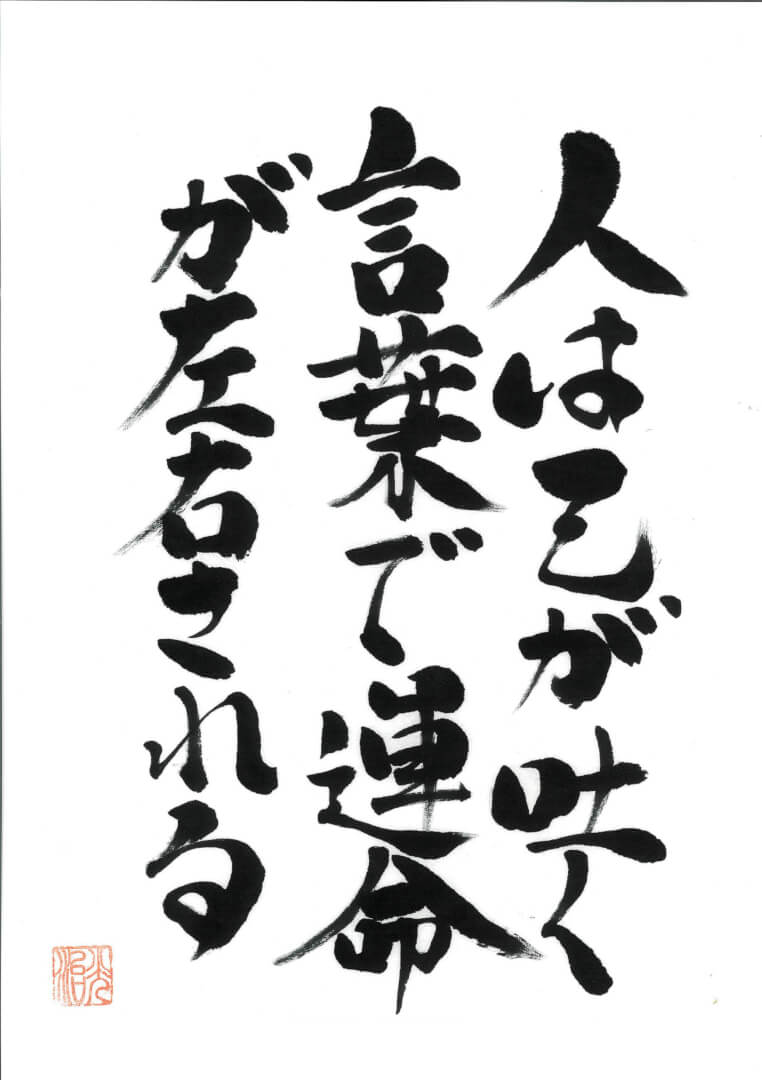 人は己が吐く
言葉で運命
が左右される